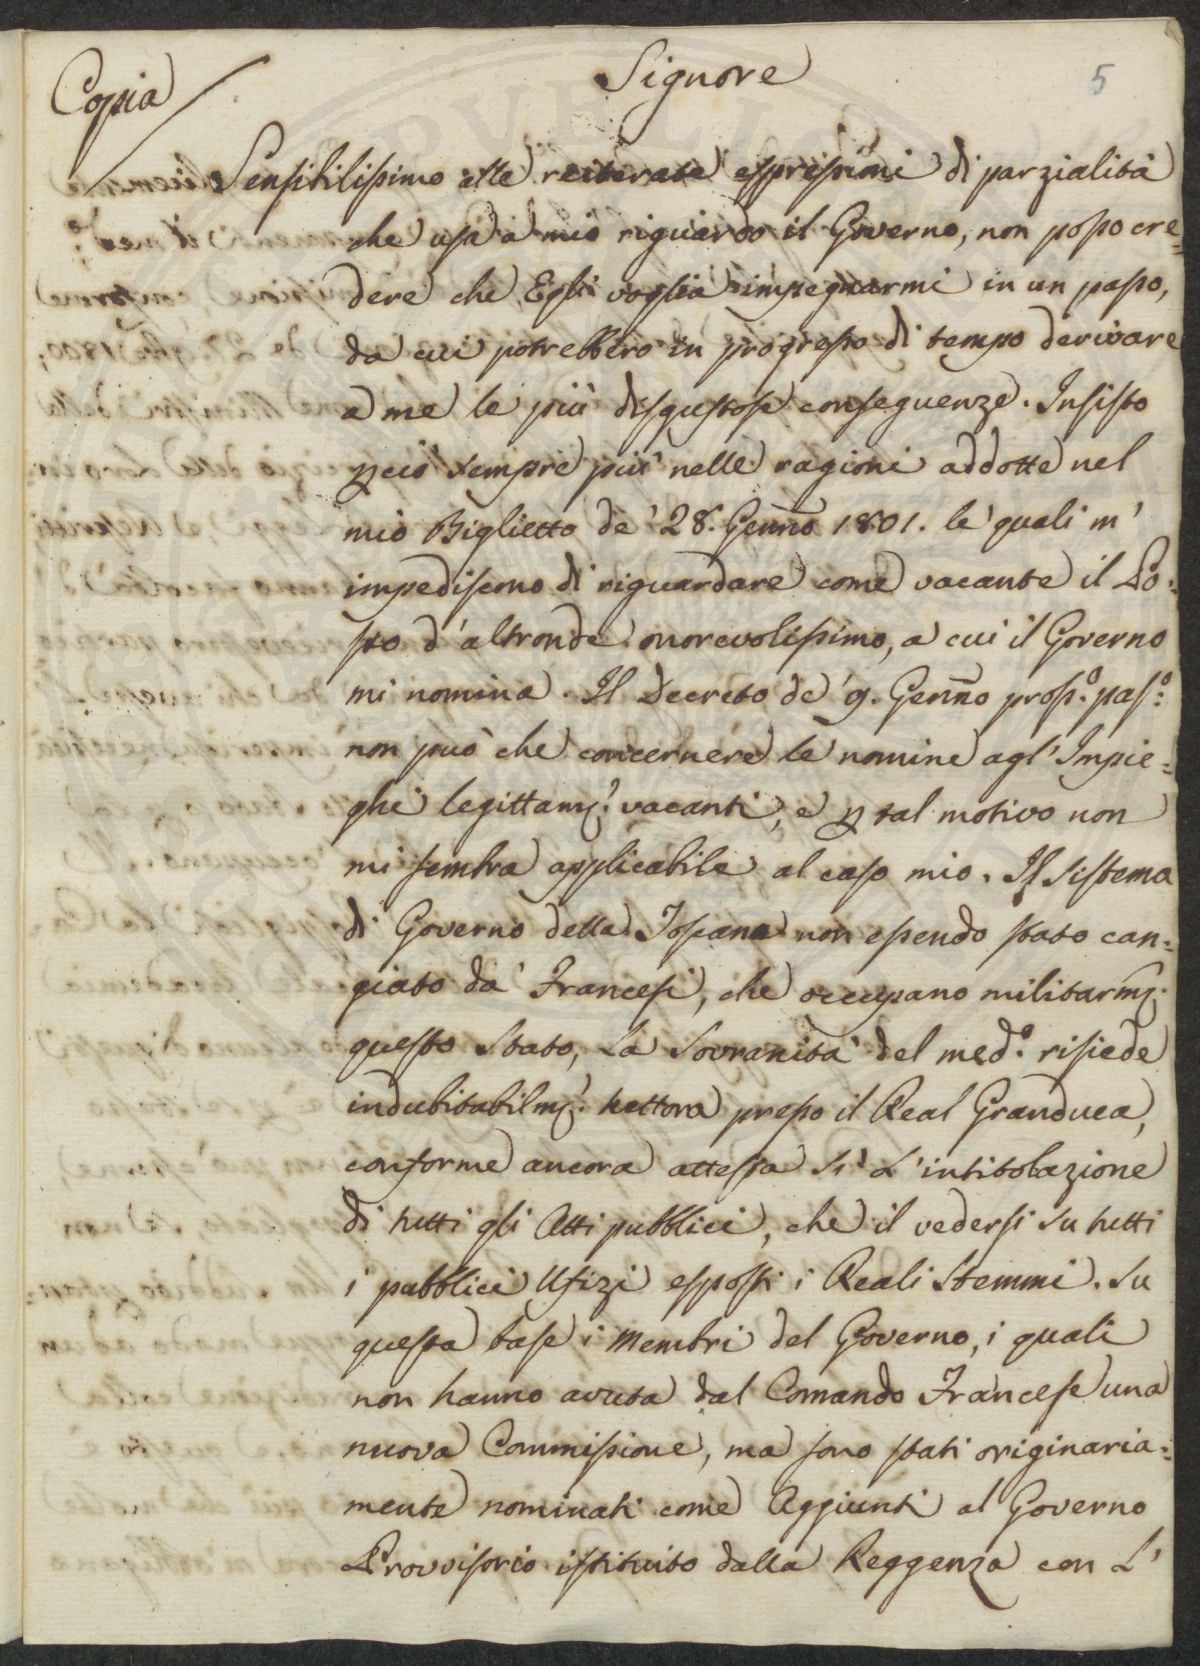 Copia
Signore
5
Sensibilissimo alle reiterate espressioni di parzialità
che usa a mio riguardo il Governo, non posso cre=
dere che Egli voglia impegnarmi in un passo,
da cui potrebbero in progresso di tempo derivare
a me le più disgustose conseguenze. Insisto
perciò sempre più nelle ragioni addotte nel
mio Biglietto de' 28. Genn̄o 1801. le quali m'
impediscono di riguardare come vacante il Po=
sto d'altronde onorevolissimo, a cui il Governo
mi nomina. Il Decreto de' 9. Genn̄o pross.º pass.º
non può che concernere le nomine agl'Impie=
ghi legittamẽ. vacanti, e p tal motivo non
mi sembra applicabile al caso mio. Il sistema
di Governo della Toscana non essendo stato can=
giato da' Francesi, che occupano militarmẽ.
questo Stato, la Sovranità del med.º risiede
indubitabilmẽ. tuttora presso il Real Granduca,
conforme ancora attesta sì l'intitolazione
di tutti gli Atti pubblici, che il vedersi su tutti
i pubblici Ufizi esposti i Reali Stemmi. Su
questa base i Membri del Governo, i quali
non hanno avuta dal Comando Francese una
nuova Commissione, ma sono stati originaria=
mente nominati come Aggiunti al Governo
Provvisorio istituito dalla Reggenza con l'